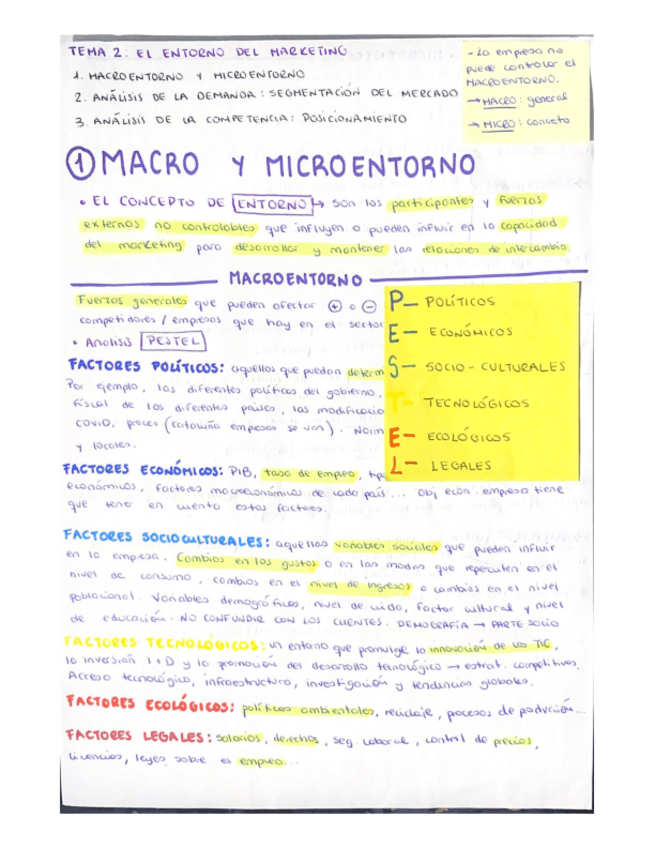 TEMA 2: EL ENTORNO DEL MARKETING
1. MACROENTORNO Y MICROENTORNO
2. ANÁLISIS DE LA DEMANDA: SEGMENTACIÓN DEL MERCADO
3. ANÁLISIS DE LA COMPETENCIA: POSICIONAMIENTO
- La empresa no
puede controlar el
MACROENTORNO.
→ MACRO: general
→ MICRO: concreto
① MACRO Y MICROENTORNO
• EL CONCEPTO DE ENTORNO → son los participantes y fuerzas
externas no controlables que influyen o pueden influir en la capacidad
del marketing para desarrollar y mantener las relaciones de intercambio.
MACROENTORNO
Fuerzas generales que pueden afectar ⊕ o ⊖
competidores / empresas que hay en el sector
• Análisis PESTEL
P- POLÍTICOS
E- ECONÓMICOS
S- SOCIO-CULTURALES
T- TECNOLÓGICOS
E- ECOLÓGICOS
L- LEGALES
FACTORES POLÍTICOS: aquellos que puedan determ
Por ejemplo, las diferentes políticas del gobierno,
fiscal de los diferentes países, las modificacio
COVID, (cataluña empresas se van). Norm
y locales.
FACTORES ECONÓMICOS: PIB, taso de empleo, tip
económicos, factores macroeconómicos de cada país... Obj econ. empresa tiene
que tener en cuenta estos factores.
FACTORES SOCIOCULTURALES: aquellas variables sociales que pueden influir
en la empresa. Cambios en los gustos o en las modas que repercuten en el
nivel de consumo, cambios en el nivel de ingresos o cambios en el nivel
poblacional. Variables demográficas, nivel de vida, factor cultural y nivel
de educación. NO CONFUNDIR CON LOS CLIENTES. DEMOGRAFÍA → PARTE SOCIO
FACTORES TECNOLÓGICOS: un entorno que promulge la innovación de las TIC,
la inversión I+D y la promoción del desarrollo tecnológico → estrat. competitivas.
Acceso tecnológico, infraestructura, investigación y tendencias globales.
FACTORES ECOLÓGICOS: políticas ambientales, reciclaje, procesos de producción...
FACTORES LEGALES: salarios, derechos, seg. laboral, control de precios,
licencias, leyes sobre el empleo...